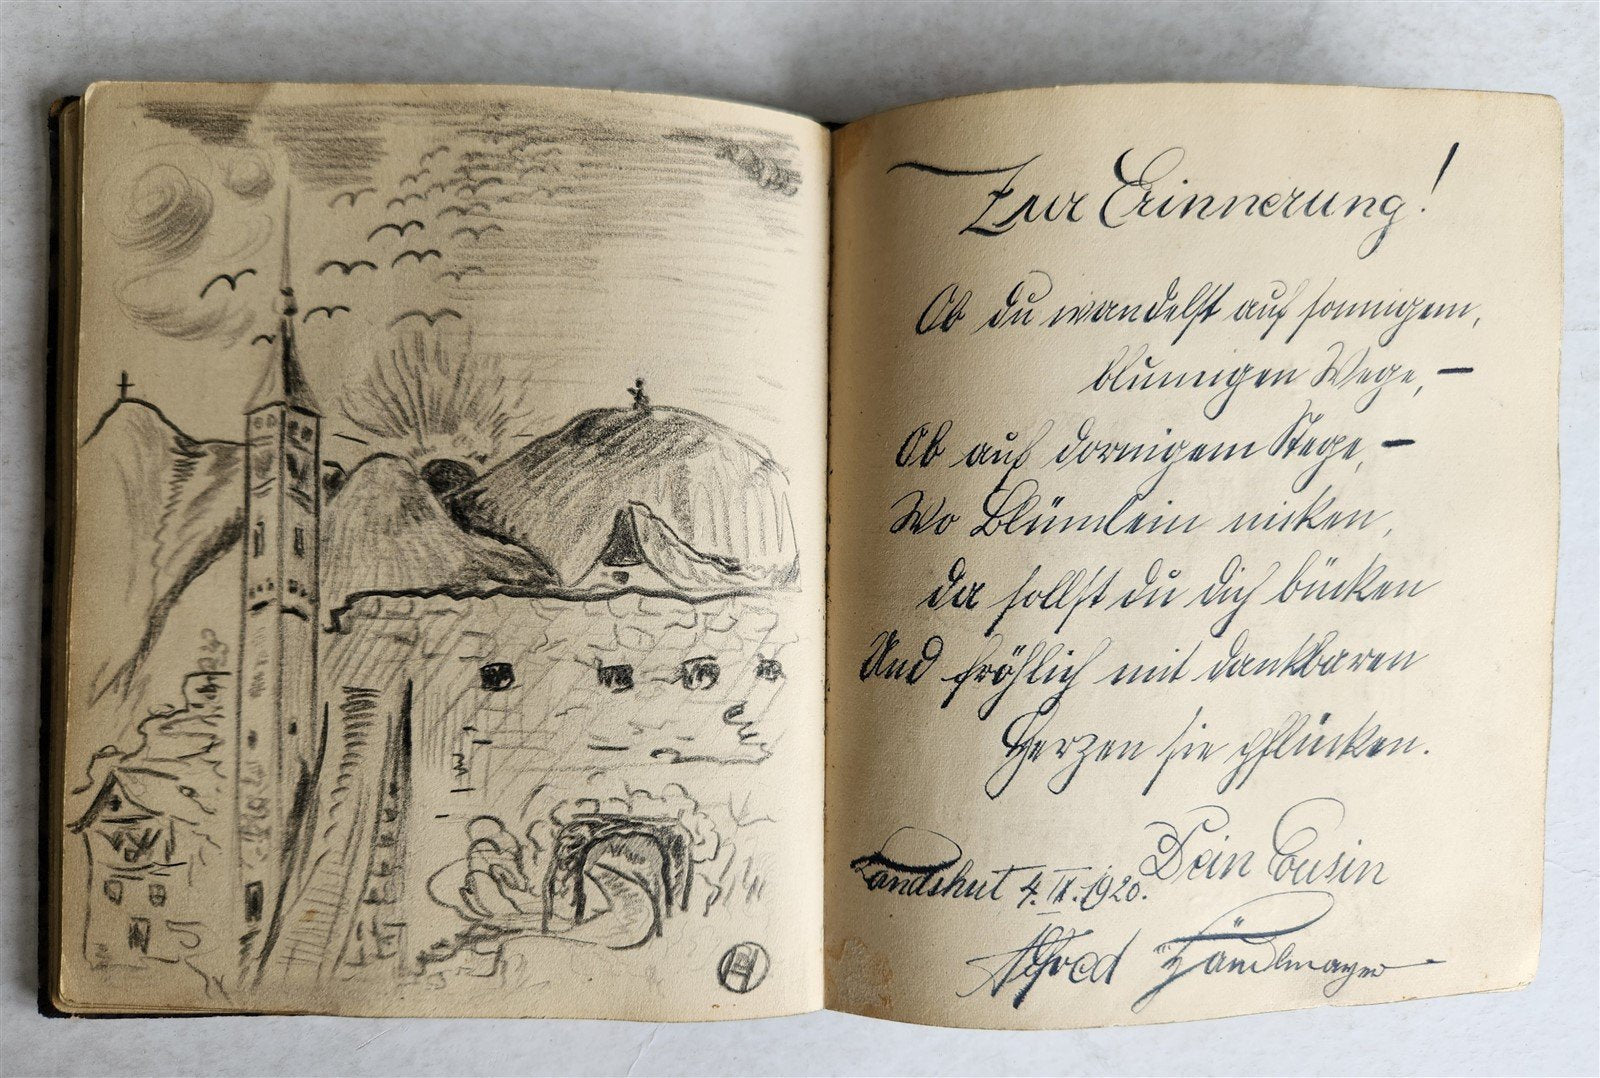 Zur Erinnerung!
Ob du wandelst auf sonnigem,
blumigen Wege, —
Ob auf dornigem Stege, —
Wo Blümlein nicken,
da sollst du dich bücken
Und fröhlich mit dankbaren
Herzen sie pflücken.
Dein Cousin
Landshut 4. II. 1920.
Alfred Händlmayer